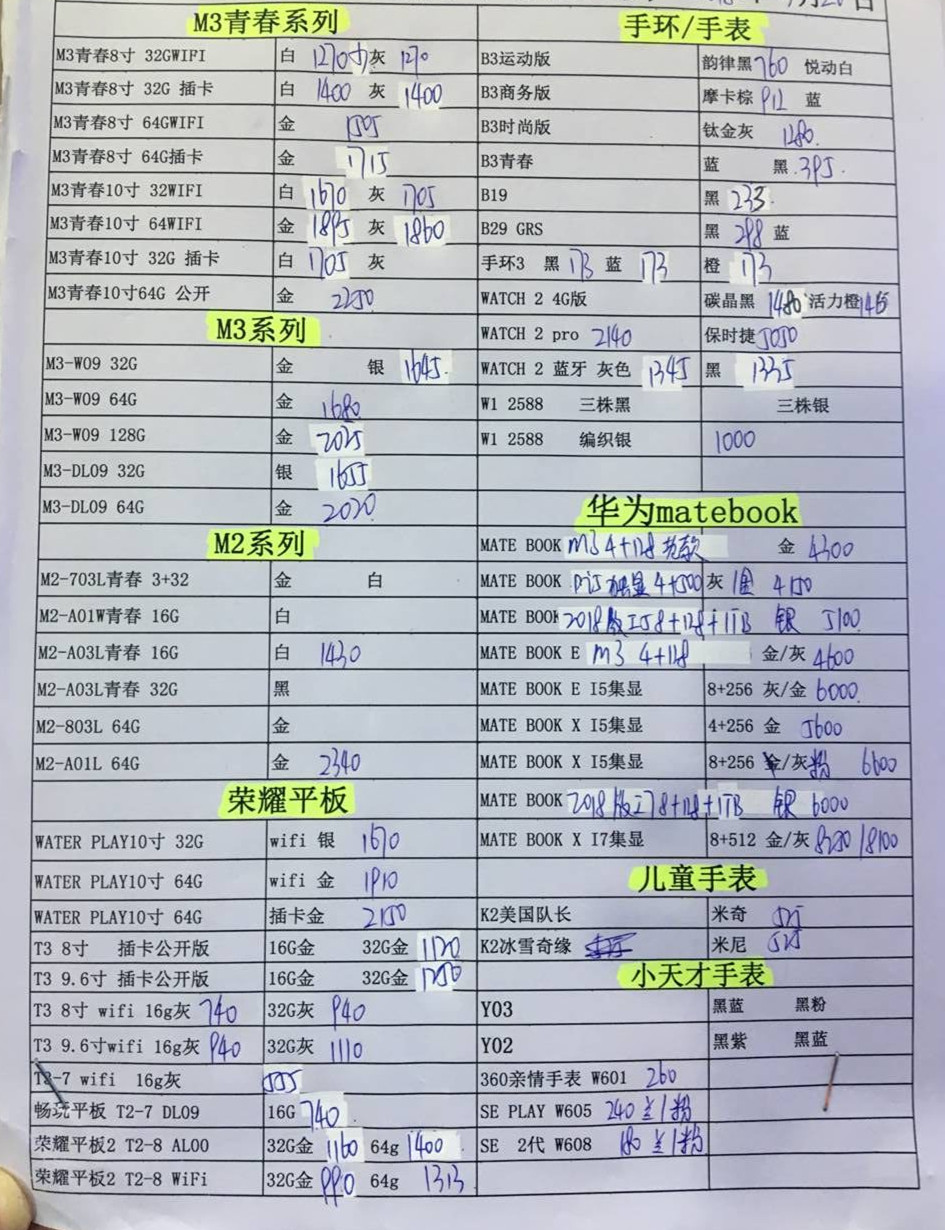 月20日
M3青春系列
M3青春8寸 32GWIFI 白 1270 灰 1270
M3青春8寸 32G 插卡 白 1400 灰 1400
M3青春8寸 64GWIFI 金 1505
M3青春8寸 64G插卡 金 1715
M3青春10寸 32WIFI 白 1670 灰 1705
M3青春10寸 64WIFI 金 1895 灰 1860
M3青春10寸 32G 插卡 白 1705 灰
M3青春10寸64G 公开 金 2250
M3系列
M3-W09 32G 金 银 1645
M3-W09 64G 金 1680
M3-W09 128G 金 2025
M3-DL09 32G 银 1655
M3-DL09 64G 金 2020
M2系列
M2-703L青春 3+32 金 白
M2-A01W青春 16G 白
M2-A03L青春 16G 白 1430
M2-A03L青春 32G 黑
M2-803L 64G 金
M2-A01L 64G 金 2340
荣耀平板
WATER PLAY10寸 32G wifi 银 1670
WATER PLAY10寸 64G wifi 金 1910
WATER PLAY10寸 64G 插卡金 2150
T3 8寸 插卡公开版 16G金 32G金 1120
T3 9.6寸 插卡公开版 16G金 32G金 1250
T3 8寸 wifi 16g灰 740 32G灰 940
T3 9.6寸wifi 16g灰 940 32G灰 1110
T2-7 wifi 16g灰 555
畅玩平板 T2-7 DL09 16G 740
荣耀平板2 T2-8 AL00 32G金 1160 64g 1400
荣耀平板2 T2-8 WiFi 32G金 990 64g 1313
手环/手表
B3运动版 韵律黑 760 悦动白
B3商务版 摩卡棕 912 蓝
B3时尚版 钛金灰 1280
B3青春 蓝 黑 395
B19 黑 233
B29 GRS 黑 298 蓝
手环3 黑 173 蓝 173 橙 173
WATCH 2 4G版 碳晶黑 1480 活力橙 1465
WATCH 2 pro 2140 保时捷 5050
WATCH 2 蓝牙 灰色 1345 黑 1335
W1 2588 三株黑 三株银
W1 2588 编织银 1000
华为matebook
MATE BOOK m3 4+128 金 4300
MATE BOOK 4+500 灰 金 4150
MATE BOOK 2018版 I5 8+128+1TB 银 5100
MATE BOOK E m3 4+128 金/灰 4600
MATE BOOK E I5集显 8+256 灰/金 6000
MATE BOOK X I5集显 4+256 金 5600
MATE BOOK X I5集显 8+256 金/灰 粉 6600
MATE BOOK 2018版 I7 8+128+1TB 银 6000
MATE BOOK X I7集显 8+512 金/灰 8280/8100
儿童手表
K2美国队长 米奇 525
K2冰雪奇缘 米尼 525
小天才手表
Y03 黑蓝 黑粉
Y02 黑紫 黑蓝
360亲情手表 W601 260
SE PLAY W605 240 兰/粉
SE 2代 W608 180 兰/粉